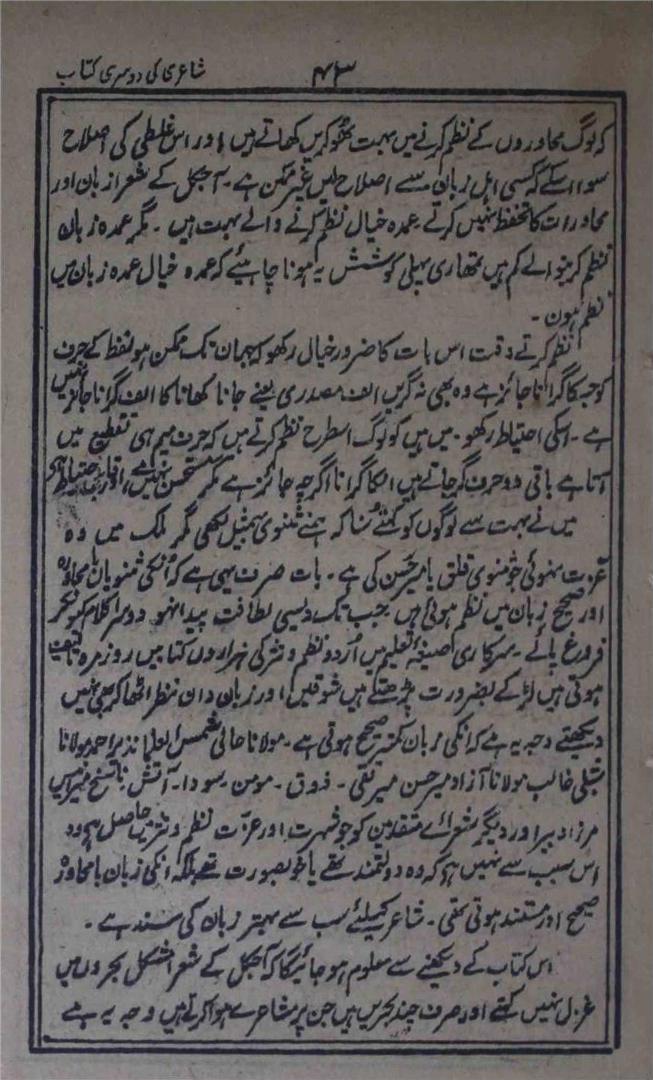 شاعری کی دوسری کتاب
۴۳
کہ لوگ محاوروں کے نظم کرنے میں بہت ٹھوکریں کھاتے ہیں اور اس غلطی کی اصلاح
سوا اسکے کہ کسی اہل زبان سے اصلاح لیں غیر ممکن ہے۔ آجکل کے شعرا زبان اور
محاورات کا تحفظ نہیں کرتے عمدہ خیال نظم کرنے والے بہت ہیں ۔ مگر عمدہ زبان
نظم کرنیوالے کم ہیں تمھاری پہلی کوشش یہ ہونا چاہیئے کہ عمدہ خیال عمدہ زبان میں
نظم ہون ۔
نظم کرتے وقت اس بات کا ضرور خیال رکھو کہ جہان تک ممکن ہو لفظ کے حرف
کو جسکا گرانا جائز ہے وہ بھی نہ گریں الف مصدری یعنے جانا کھانا کا الف گرانا جائز نہیں
ہے ۔ اسکی احتیاط رکھو ۔ میں ہیں کو لوگ اسطرح نظم کرتے ہیں کہ حرف میم ہی تقطیع میں
آتا ہے باقی دو حرف گر جاتے ہیں انکا گرانا اگرچہ جائز ہے مگر مستحسن نہیں ہے
میں نے بہت سے لوگوں کو کہتے سُنا کہ ہمنے مثنوی بیمثیل لکھی مگر ملک میں وہ
عزت نہوئی جو مثنوی قلق یا میر حسن کی ہے ۔ بات صرف یہی ہے کہ اُنکی مثنویاں بامحاورہ
اور صحیح زبان میں نظم ہوئی ہیں جب تک ویسی لطافت پیدا نہو دوسرا کلام کیونکر
فروغ پائے ۔ سرکاری صیغۂ تعلیم میں اُردو نظم و نثر کی ہزاروں کتابیں روزمرہ تالیف
ہوتی ہیں لڑکے بضرورت پڑھتے ہیں شوقین اور زبان دان نظر اٹھا کر بھی نہیں
دیکھتے وجہ یہ ہے کہ انکی زبان کمتر صحیح ہوتی ہے ۔ مولانا حالی شمس العلما نذیر احمد مولانا
شبلی غالب مولانا آزاد میر حسن میر تقی ۔ ذوق ۔ مومن ۔ سودا ۔ آتش ناسخ میر انیس
مرزا دبیر اور دیگر شعرائے متقدمین کو جو شہرت اور عزت نظم و نثر میں حاصل ہے وہ
اس سبب سے نہیں ہے کہ وہ دولتمند تھے یا خوبصورت تھے بلکہ انکی زبان بامحاورہ
صحیح اور مستند ہوتی تھی ۔ شاعر کیلئے سب سے بہتر زبان کی سند ہے ۔
اس کتاب کے دیکھنے سے معلوم ہو جائیگا کہ آجکل کے شعرا مشکل بحروں میں
غزل نہیں کہتے اور صرف چند بحریں ہیں جن پر مشاعرے ہوا کرتے ہیں وجہ یہ ہے